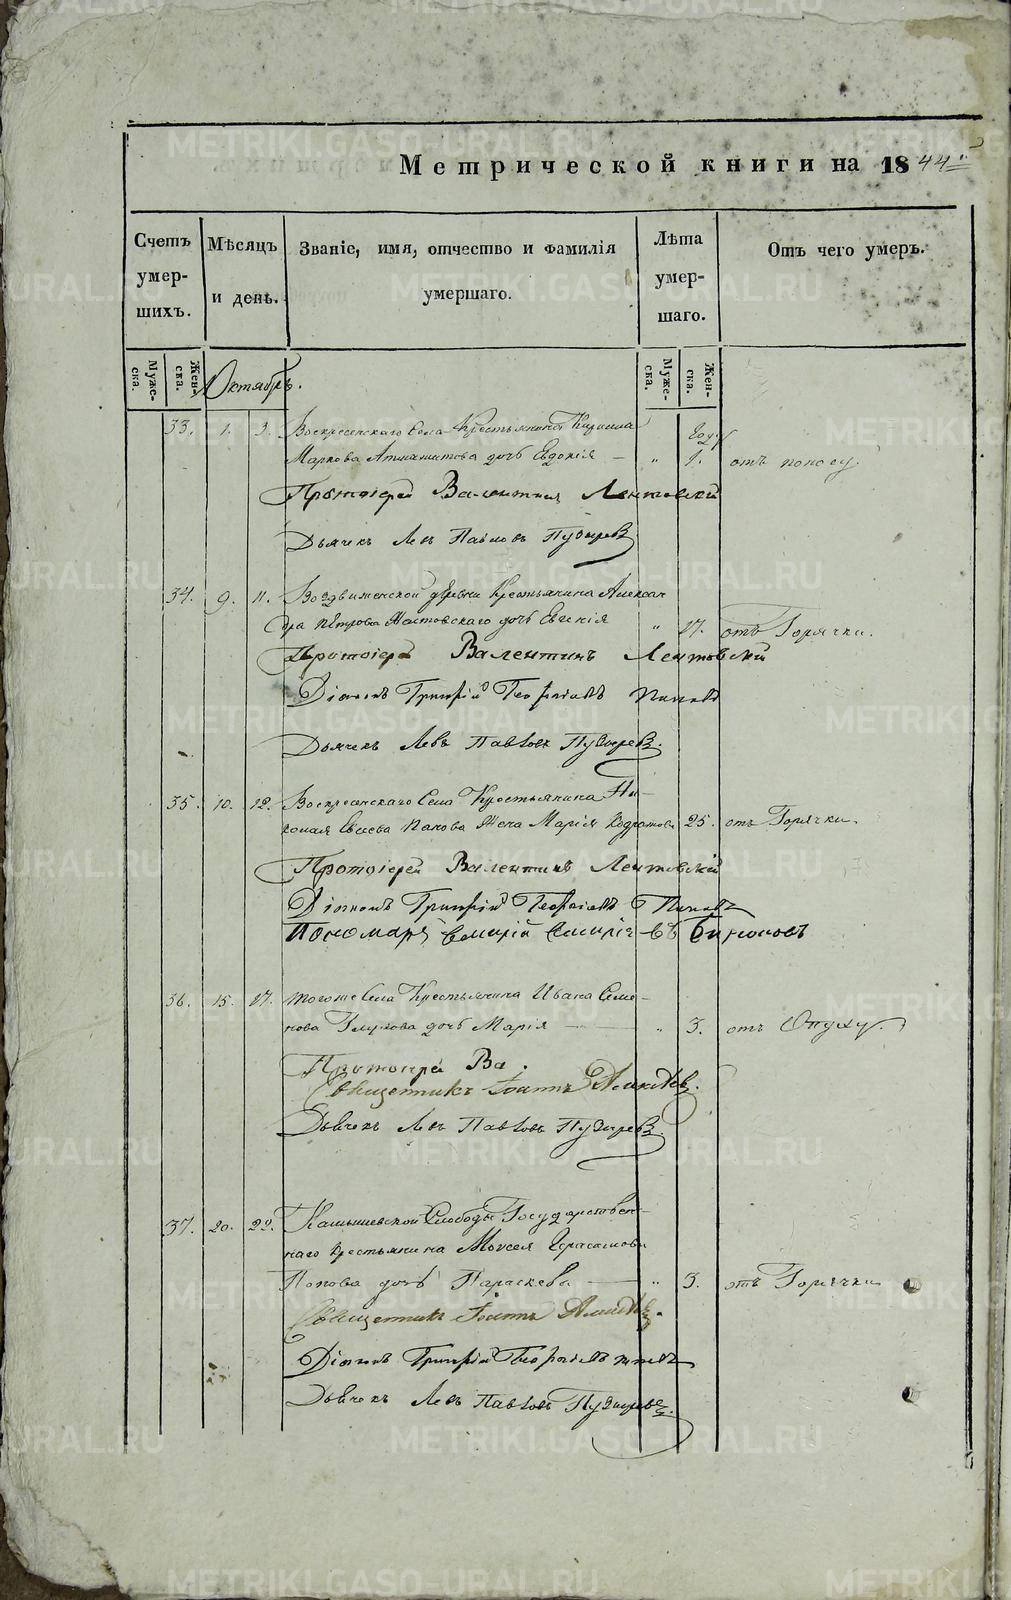 Метрической книги на 1844
Счетъ умершихъ.
Мѣсяцъ и день.
Званіе, имя, отчество и фамилія умершаго.
Лѣта умершаго.
Отъ чего умеръ.
Мужеска.
Женска.
Октябрь.
Мужеска.
Женска.
33. 1. 3. Воскресенскаго села Крестьянина Кирилла
Году
Маркова дочь Евдокія — „ 1. отъ поносу.
Протоіерей Валентинъ Лентовскій
Дьячекъ Левъ Павловъ Пузыревъ
34. 9. 11. Воздвиженской деревни Крестьянина Александра
Петрова дочь Евгенія „ 17. отъ Горячки.
Протоіерей Валентинъ Лентовскій
Діаконъ Григорій Георгіевъ
Дьячекъ Левъ Павловъ Пузыревъ.
35. 10. 12. Воскресенскаго Села Крестьянина Ни-
колая Евсеева Попова Жена Марія 25. отъ Горячки.
Протоіерей Валентинъ Лентовскій
Діаконъ Григорій Георгіевъ
Пономарь
36. 15. 17. Тогоже Села Крестьянина Ивана Семе-
нова Глухова дочь Марія — „ 3. отъ Опуху.
Протоіерей Ва
Священникъ Іоаннъ
Дьячекъ Левъ Павловъ Пузыревъ
37. 20. 22. Камышевской Слободы Государствен-
наго крестьянина Моисея Герасимова
Попова дочь Параскева — „ 3. отъ Горячки
Священникъ Іоаннъ
Діаконъ Григорій Георгіевъ
Дьячекъ Левъ Павловъ Пузыревъ.
METRIKI.GASO-URAL.RU